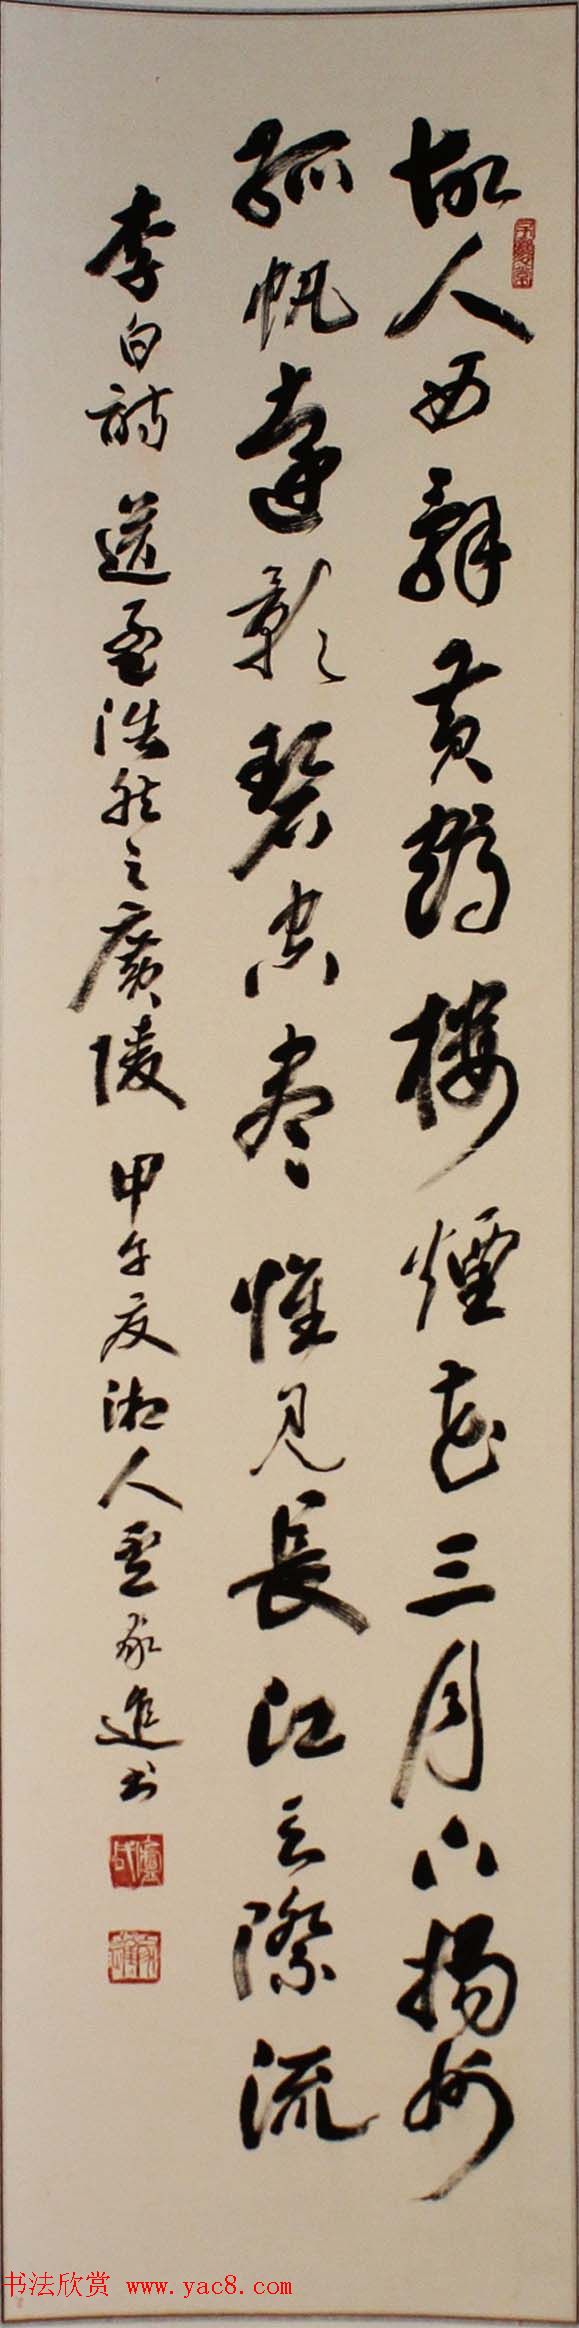 故人西辭黄鶴樓煙花三月下揚州
孤帆遠影碧空盡惟見長江天際流
李白詩 送孟浩然之廣陵 甲午夏湘人盧家進书
书法欣赏 www.yac8.com